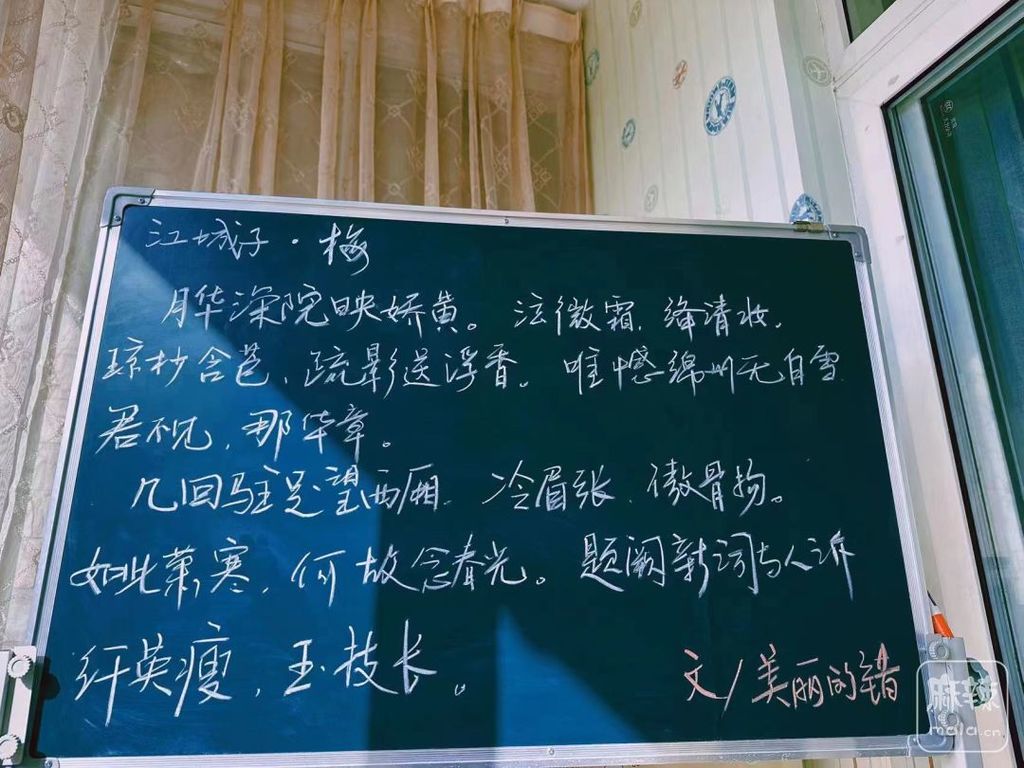 江城子·梅
月华深院映娇黄。沄微霜,绛清妆,
琼抄含苞,疏影送浮香。唯憾绵州无白雪
君不见,那华章。
几回驻足望西厢,冷眉张,傲骨扬。
如此萧寒,何故念春光。题阕新词与人诉
纤英瘦,玉枝长。
文/美丽的错
麻辣
mala.cn